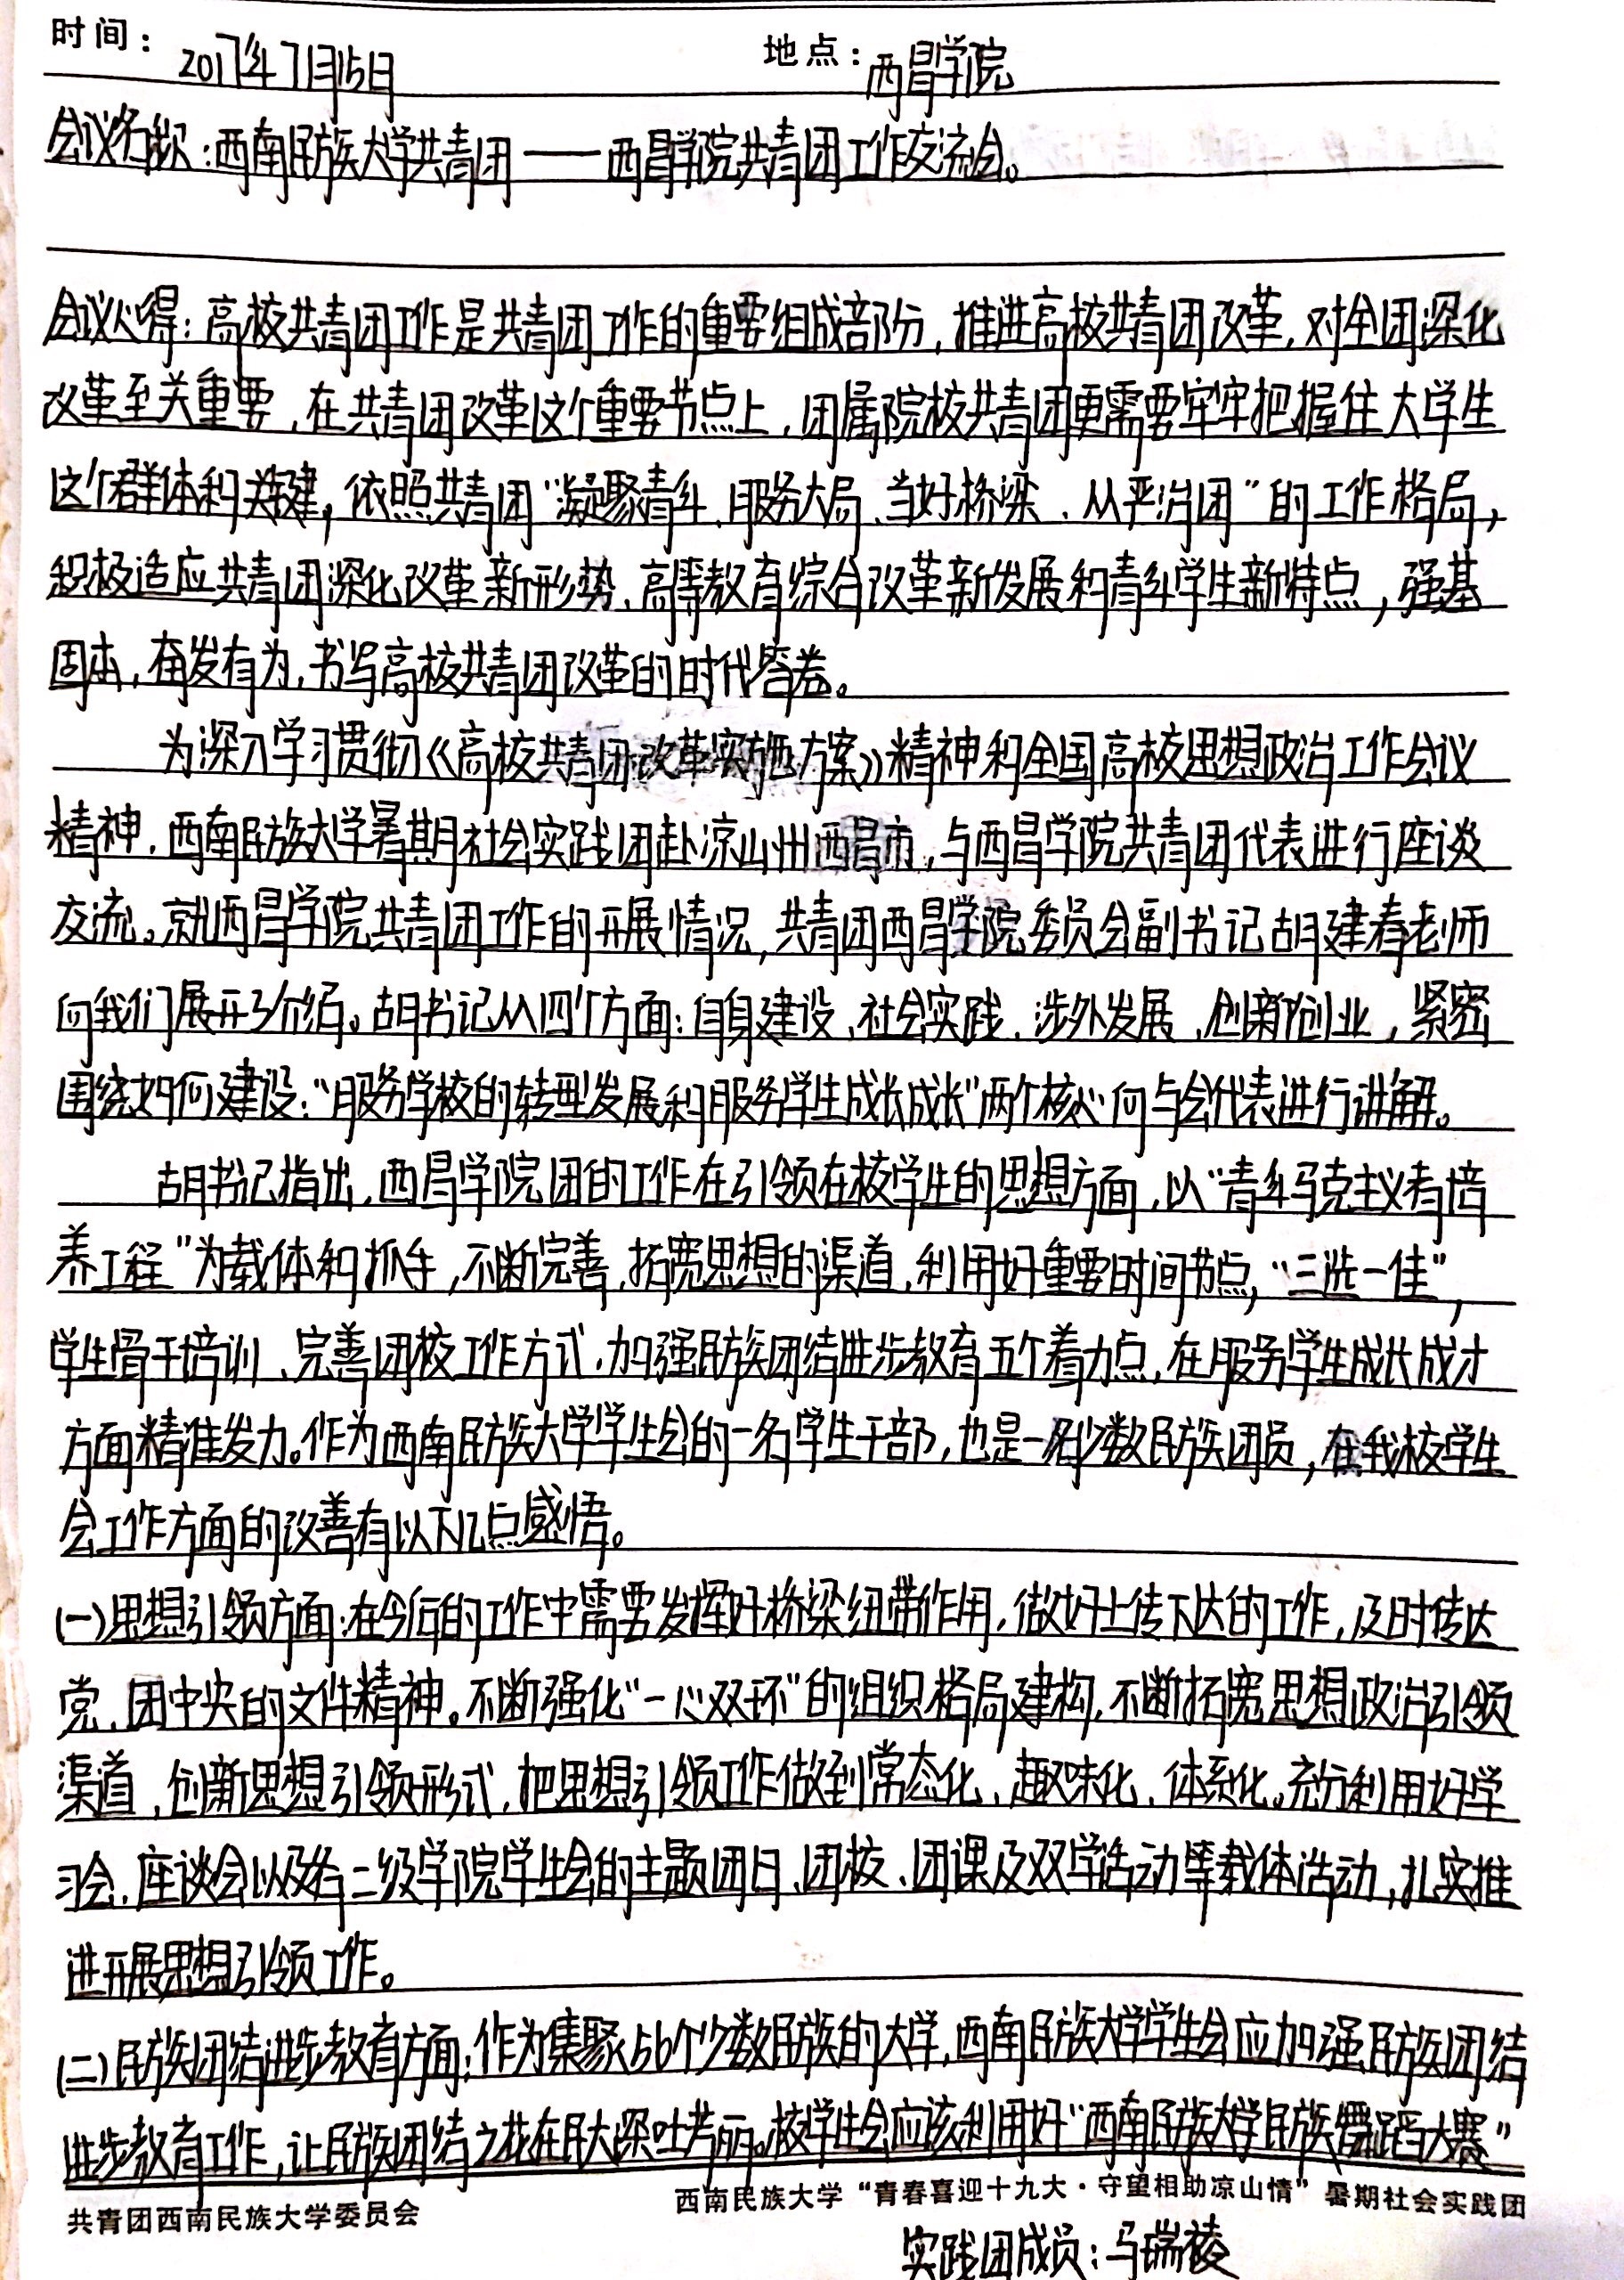 时间：2017年7月15日 地点：西昌学院
会议名称：西南民族大学共青团——西昌学院共青团工作交流会。
会议心得：高校共青团工作是共青团工作的重要组成部分，推进高校共青团改革，对全团深化
改革至关重要，在共青团改革这个重要节点上，团属院校共青团更需要牢牢把握住大学生
这个群体和关键，依照共青团“凝聚青年、服务大局、当好桥梁、从严治团”的工作格局，
积极适应共青团深化改革新形势、高等教育综合改革新发展和青年学生新特点，强基
固本，奋发有为，书写高校共青团改革的时代答卷。
为深入学习贯彻《高校共青团改革实施方案》精神和全国高校思想政治工作会议
精神，西南民族大学暑期社会实践团赴凉山州西昌市，与西昌学院共青团代表进行座谈
交流。就西昌学院共青团工作的开展情况，共青团西昌学院委员会副书记胡建春老师
向我们展开了介绍。胡书记从四个方面：自身建设、社会实践、涉外发展、创新创业，紧密
围绕如何建设：“服务学校的转型发展和服务学生成长成长”两个核心向与会代表进行讲解。
胡书记指出，西昌学院团的工作在引领在校学生的思想方面，以“青年马克主义者培
养工程”为载体和抓手，不断完善，拓宽思想的渠道，利用好重要时间节点，“三选一佳”，
学生骨干培训、完善团校工作方式，加强民族团结进步教育五个着力点，在服务学生成长成才
方面精准发力。作为西南民族大学学生会的一名学生干部，也是一名少数民族团员，在我校学生
会工作方面的改善有以下几点感悟。
(一)思想引领方面：在今后的工作中需要发挥好桥梁纽带作用，做好上传下达的工作，及时传达
党、团中央的文件精神。不断强化“一心双环”的组织格局建构，不断拓宽思想政治引领
渠道，创新思想引领形式，把思想引领工作做到常态化、趣味化、体系化。充分利用好学
习会、座谈会以及各二级学院学生会的主题团日、团校、团课及双学活动等载体活动，扎实推
进开展思想引领工作。
(二)民族团结进步教育方面：作为集聚56个少数民族的大学，西南民族大学学生会应加强民族团结
进步教育工作，让民族团结之花在民大深吐芳丽。校学生会应该利用好“西南民族大学民族舞蹈大赛”
共青团西南民族大学委员会 西南民族大学“青春喜迎十九大·守望相助凉山情”暑期社会实践团
实践团成员：马瑞祾